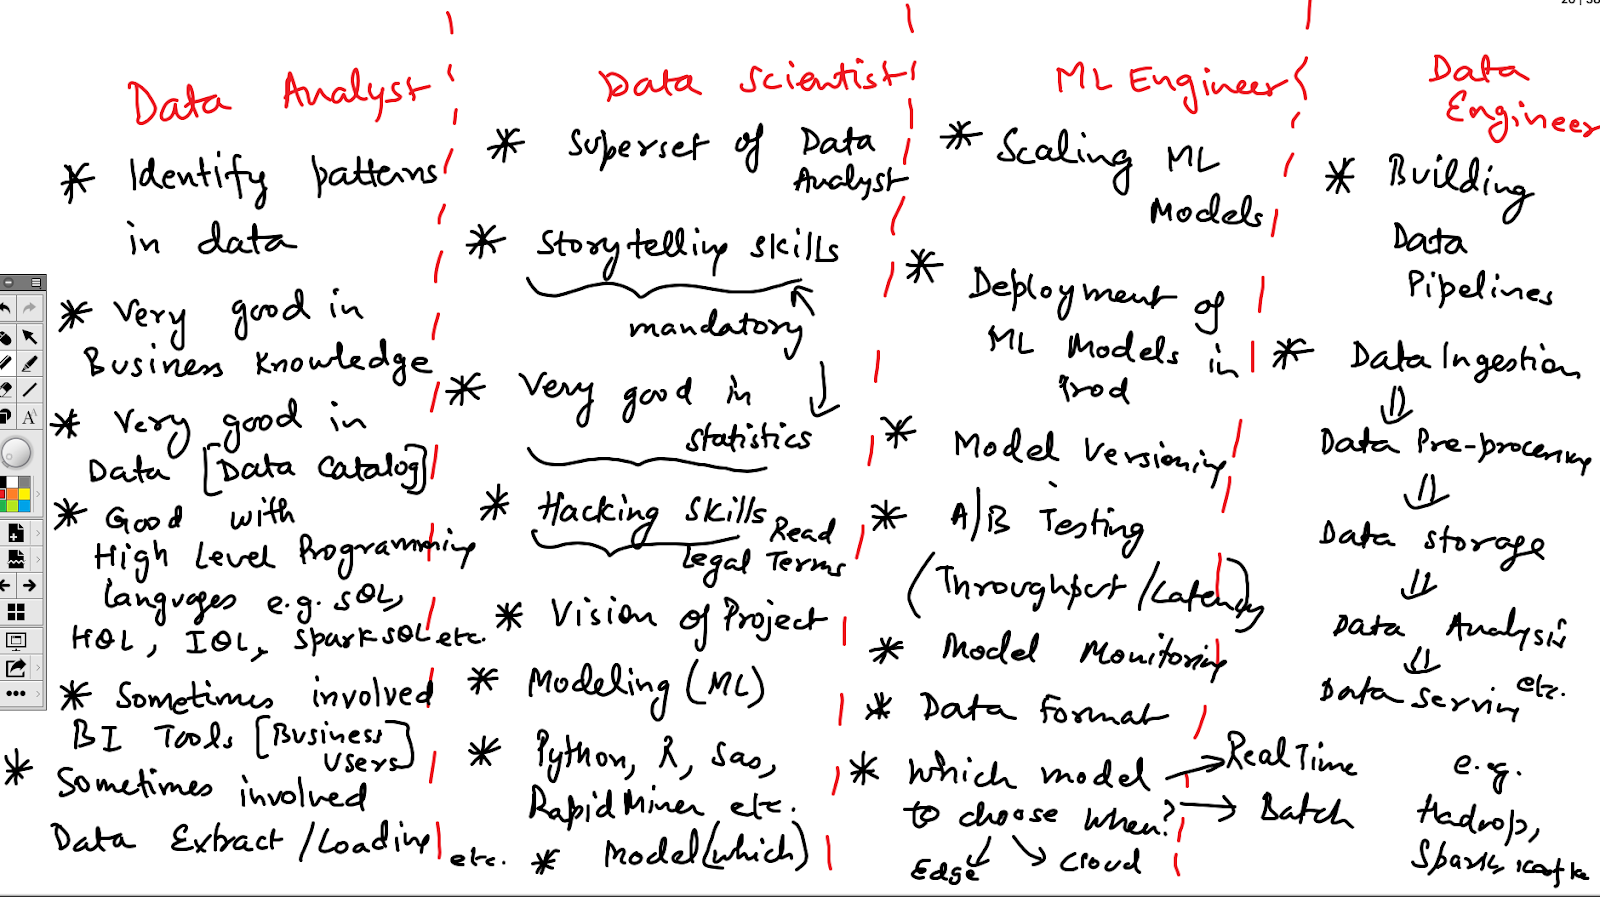 Data Analyst
* Identify patterns
in data
* Very good in
Business Knowledge
* Very good in
Data [Data Catalog]
* Good with
High Level Programming
languages e.g. SQL,
HQL, IQL, SparkSQL etc.
* Sometimes involved
BI Tools [Business
Users]
* Sometimes involved
Data Extract/Loading
etc.
Data Scientist
* Superset of Data
Analyst
* Storytelling skills
mandatory
* Very good in
statistics
* Hacking Skills
Read
Legal Terms
* Vision of Project
* Modeling (ML)
* Python, R, Sas,
RapidMiner etc.
* Model (which)
ML Engineer
* Scaling ML
Models
* Deployment of
ML Models in
Prod
* Model Versioning
* A/B Testing
(Throughput/Latency)
* Model Monitoring
* Data Format
* Which model
to choose when?
Real Time
Batch
Edge
Cloud
Data
Engineer
* Building
Data
Pipelines
* Data Ingestion
Data Pre-processing
Data Storage
Data Analysis
Data Serving etc.
e.g.
Hadoop,
Spark, Kafka